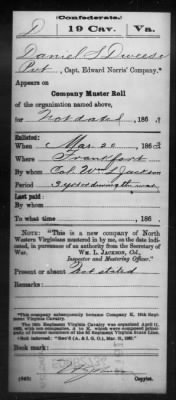 (Confederate.)
D 19 Cav. Va.
Daniel S. Deweese
Pvt, Capt. Edward Norris' Company.*
Appears on
Company Muster Roll
of the organization named above,
for Not dated, 186
Enlisted:
When Mar 20, 1863
Where Frankfort
By whom Col. Wm L Jackson
Period 3 years or during the war
Last paid:
By whom
To what time , 186
NOTE: "This is a new company of North
Western Virginians mustered in by me, on the date indi-
cated, in pursuance of an authority from the Secretary
of War. WM. L. JACKSON, Col.,
Inspector and Mustering Officer."
Present or absent Not stated
Remarks:
*This company subsequently became Company K, 19th Regi-
ment Virginia Cavalry.
The 19th Regiment Virginia Cavalry was organized April 11,
1863, with ten companies, A to K, which were composed princi-
pally of former members of the 3d Regiment Virginia State Line.
Book mark:
(642)
Copyist.